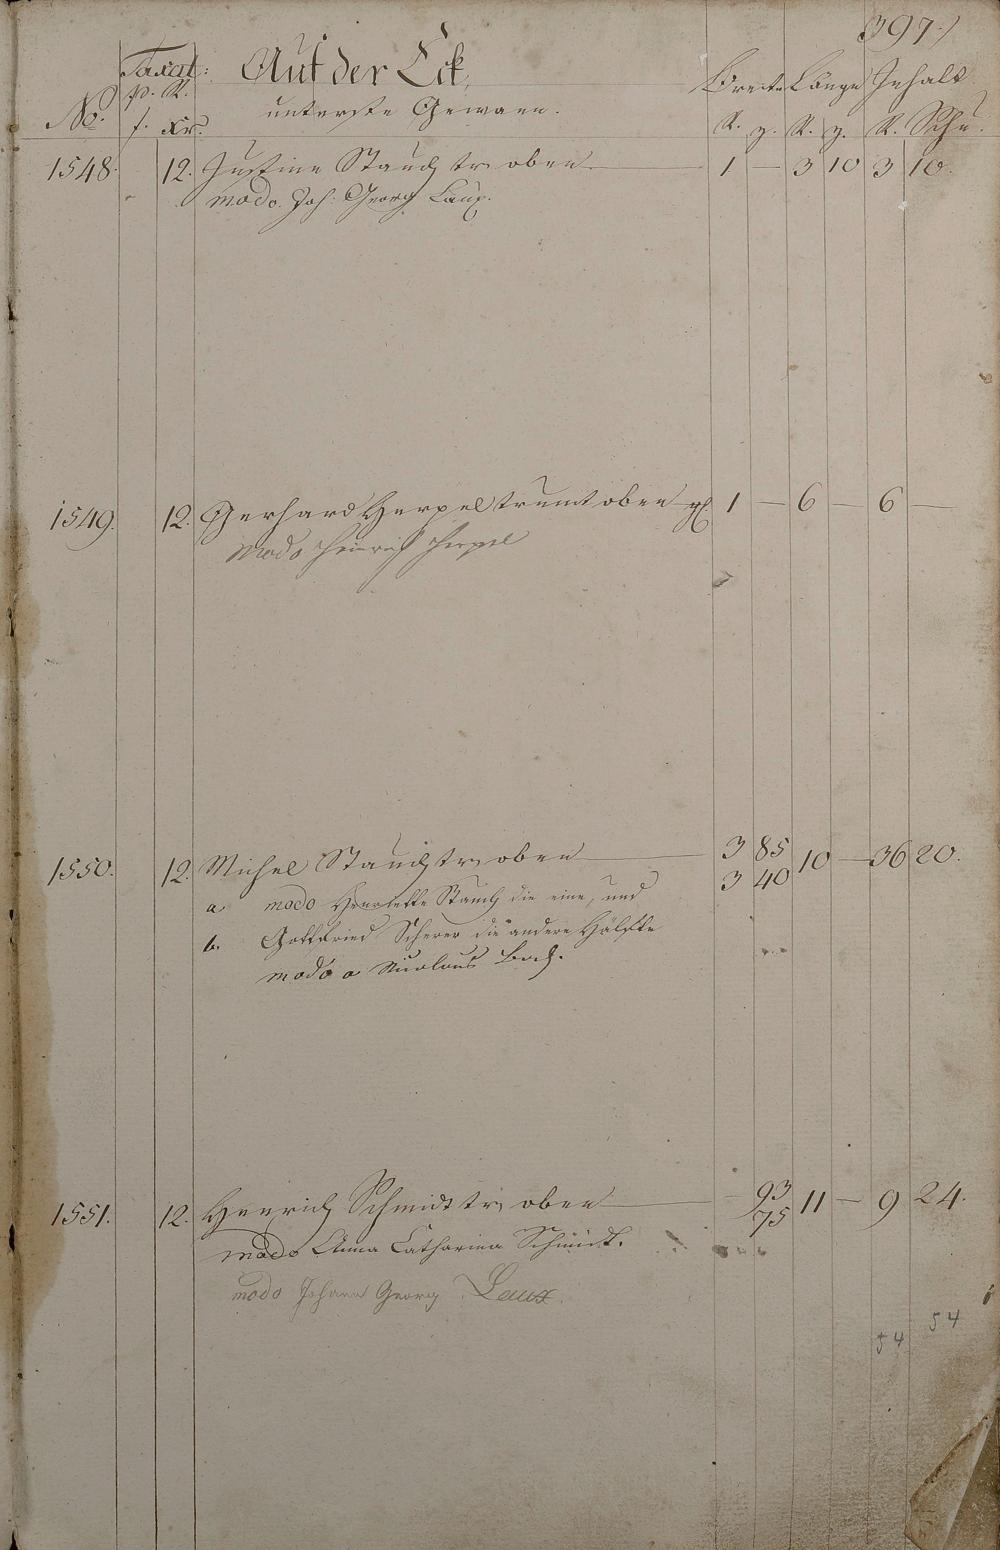 397.)
Taxat: Auf der Eck,
p. R. Breite Länge Inhalt
No. f. Xr. unterste Gewann. R. R. R. Schu.
1548. 12. Justine Stauch tr. oben 1 — 3 10 3 10.
modo Joh: Georg Laux.
1549. 12. Gerhard Herpel trumt oben 1 — 6 — 6 —
modo Heinrich Herpel
1550. 12. Michel Stauch tr. oben 3 85 10 — 36 20.
3 40
a modo Henriette Stauch die eine, und
b. Gottfried Scherer die andere Hälfte
modo a Nicolaus Bach.
1551. 12. Henrich Schmidt tr. oben — 93 11 — 9 24.
75
modo Anna Catharina Schmidt.
modo Johann Georg Laux
54
54